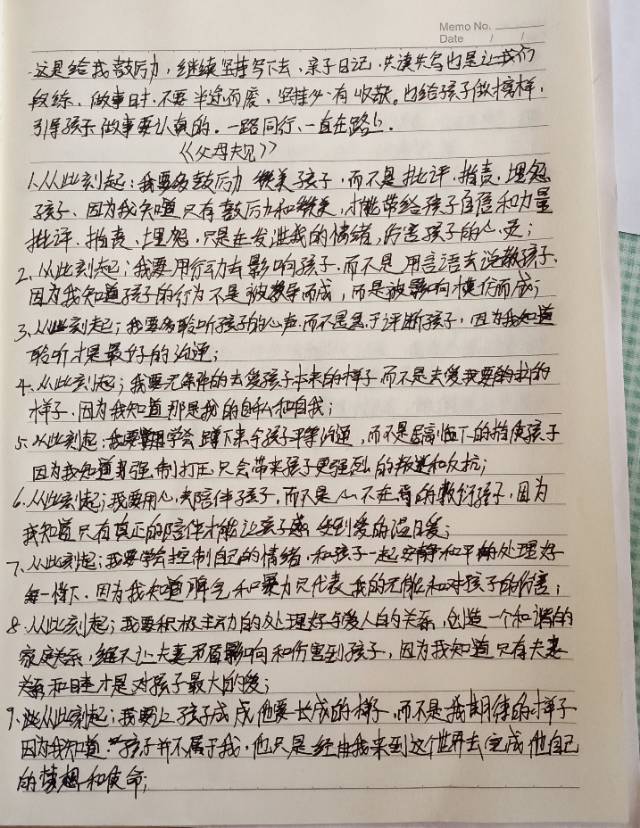 Memo No.
Date / /
这是给我鼓励,继续坚持写下去,亲子日记,共读共写也是让我们
锻练,做事时,不要半途而废,坚持必有收获。也给孩子做榜样,
引导孩子做事要认真的。一路同行、一直在路上.
《父母夫见》
1.从此刻起:我要多鼓励 赞美孩子,而不是批评、指责、埋怨
孩子、因为我知道只有鼓励和赞美,才能带给孩子自信和力量
批评、指责、埋怨,只是在发泄我的情绪,伤害孩子的心灵;
2、从此刻起:我要用行动去影响孩子,而不是用言语去说教孩子、
因为我知道孩子的行为不是被教导而成,而是被影响模仿而成;
3、从此刻起;我要多聆听孩子的心声,而不是急于评断孩子,因为我知道
聆听才是最好的沟通;
4、从此刻起;我要无条件的去爱孩子本来的样子而不是去爱我要的
样子、因为我知道那是我的自私和自我;
5、从此刻起:我要学会蹲下来与孩子平等沟通,而不是居高临下的指使孩子
因为我知道强制打压只会带来孩子更强烈的叛逆和反抗;
6、从此刻起;我要用心去陪伴孩子,而不是心不在焉的敷衍孩子,因为
我知道只有真正的陪伴才能让孩子感受到爱的温暖;
7、从此刻起;我要学会控制自己的情绪,和孩子一起安静和平的处理好
每一件下、因为我知道脾气和暴力只代表我的无能和对孩子的伤害;
8、从此刻起;我要积极主动的处理好与爱人的关系,创造一个和谐的
家庭关系,绝不让夫妻矛盾影响和伤害到孩子,因为我知道只有夫妻
关系和睦才是对孩子最大的爱;
9、从此刻起:我要让孩子成成他要长成的样子,而不是我期待的样子
因为我知道"孩子并不属于我,他只是经由我来到这个世界去完成他自己
的梦想和使命;